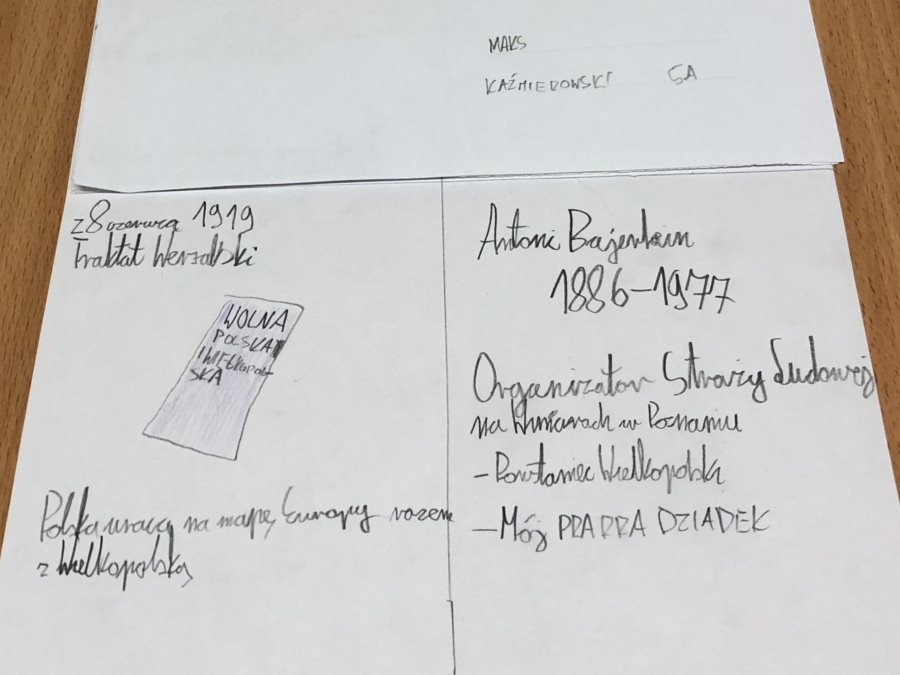 MAKS
KAŹMIEROWSKI 5A
28 czerwca 1919
Traktat Wersalski
WOLNA
POLSKA
I WIELKOPOL-
SKA
Polska wraca na mapę Europy razem
z Wielkopolską
Antoni Bajerlein
1886-1977
Organizator Straży Ludowej
na Winiarach w Poznaniu
- Powstaniec Wielkopolski
- Mój PRAPRA DZIADEK